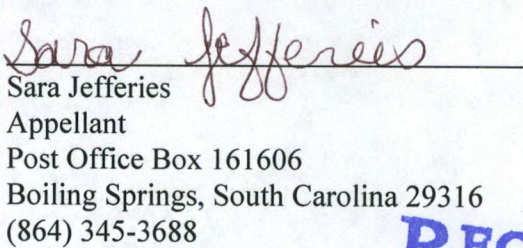 Sara Jefferies
Sara Jefferies
Appellant
Post Office Box 161606
Boiling Springs, South Carolina 29316
(864) 345-3688